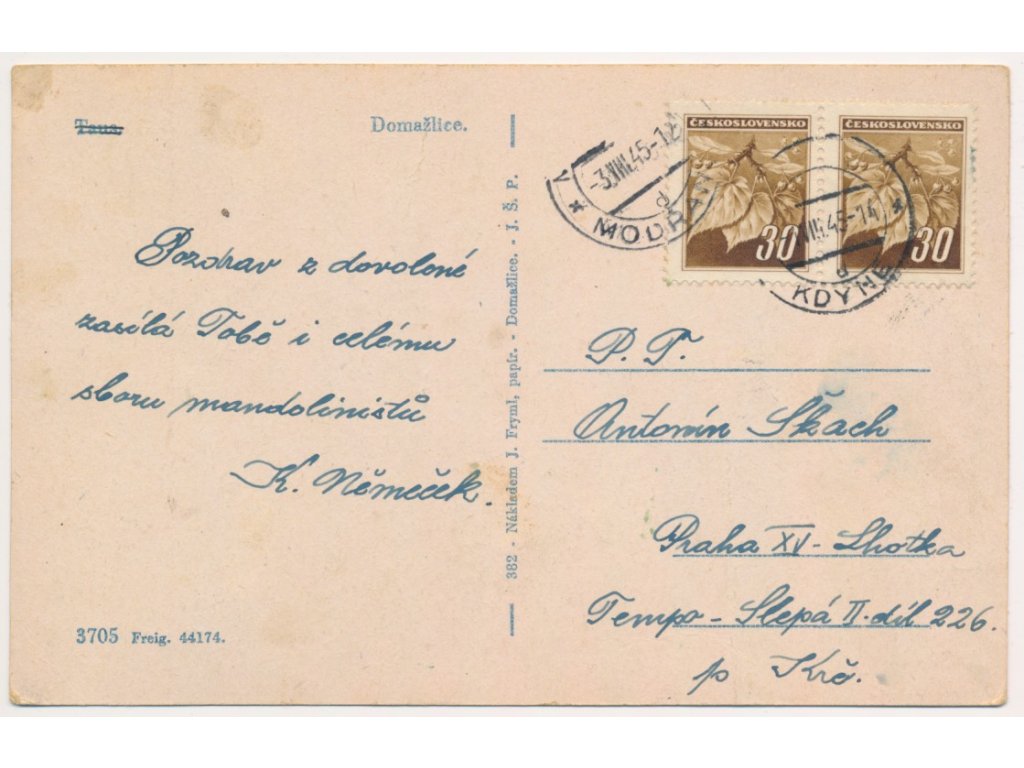 Taus.
Domažlice.
Pozdrav z dovolené
zasílá Tobě i celému
sboru mandolinistů
K. Němeček.
3705 Freig. 44174.
382 - Nákladem J. Fryml, papír. - Domažlice. - J. Š. P.
ČESKOSLOVENSKO
30
ČESKOSLOVENSKO
30
-3.VIII.45-12
MODRAV
d
VIII.45-14
d
KDYNĚ
P. T.
Antonín Škach
Praha XV - Lhotka
Tempo - Slepá II. díl 226.
p Krč.